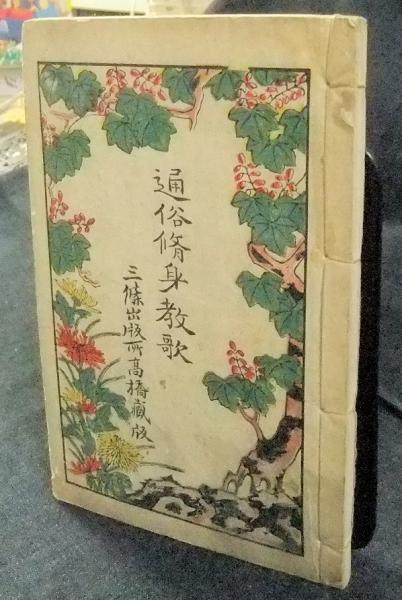 通俗脩身教歌
三條出版所高橋藏版